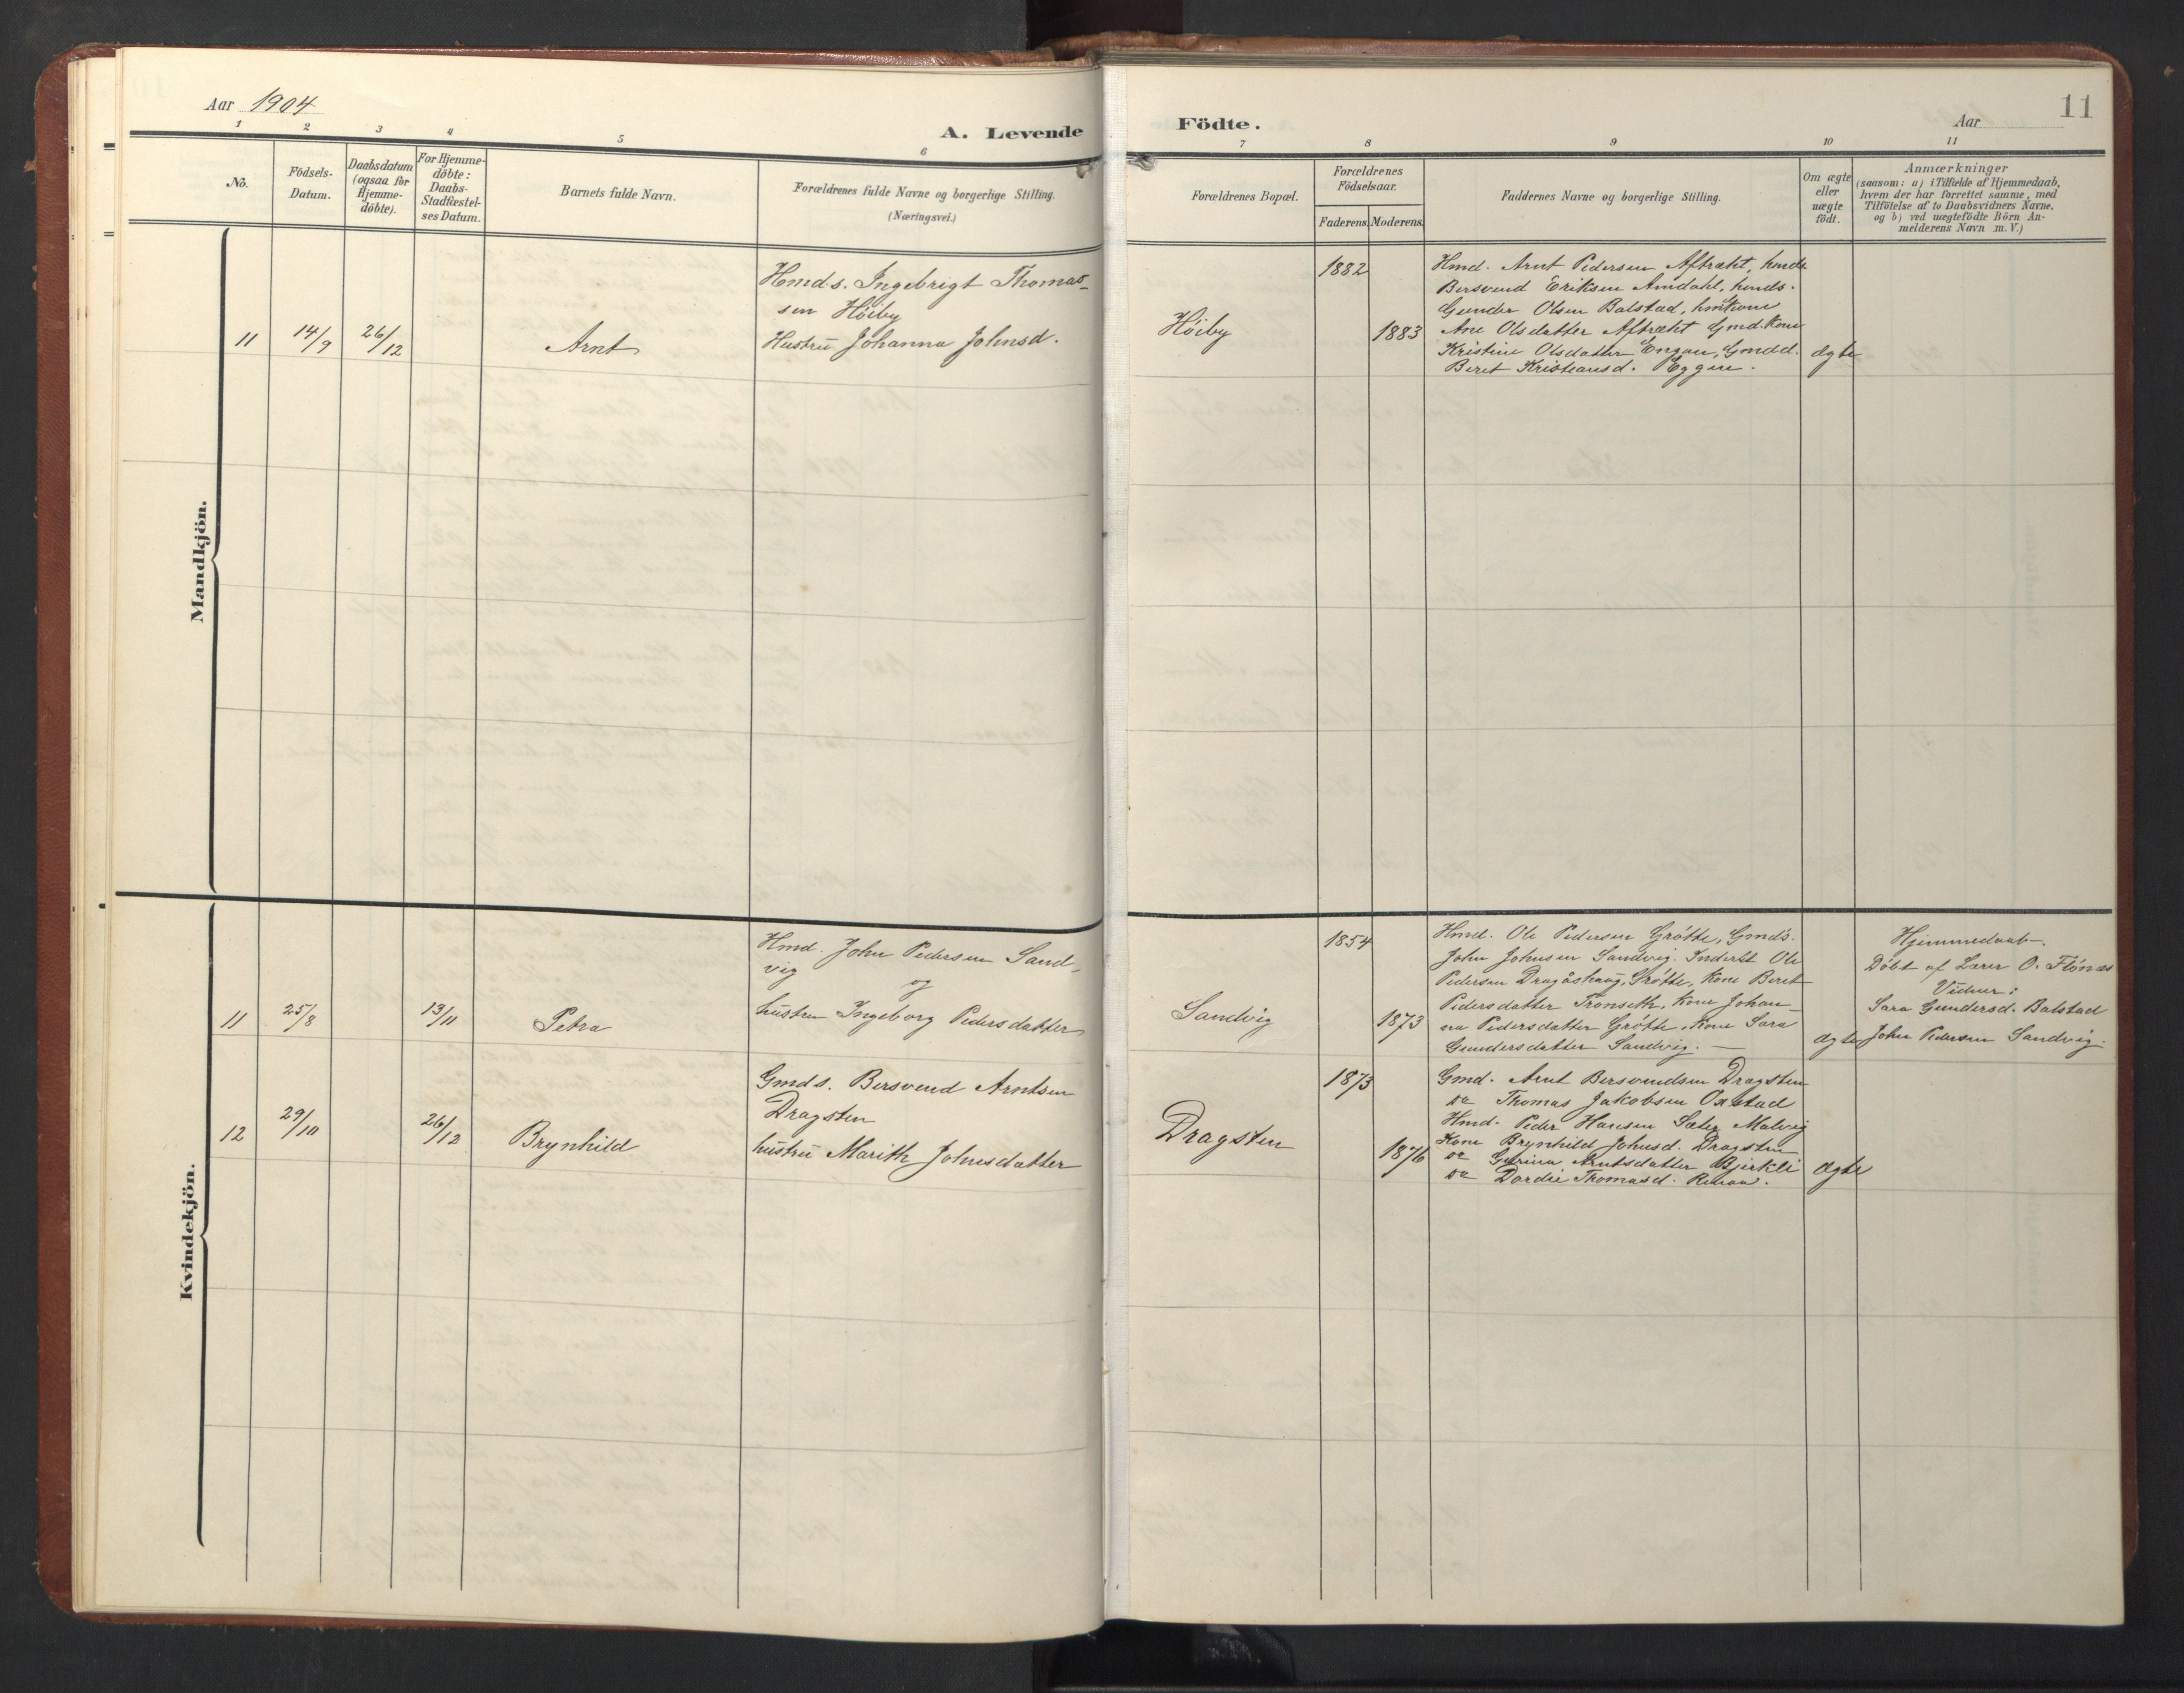 Aar 1904
A. Levende
1 2 3 4 5 6
No.
Födsels-
Datum.
Daabsdatum
(ogsaa for
Hjemme-
döbte).
For Hjemme-
döbte:
Daabs-
Stadfæstel-
ses Datum.
Barnets fulde Navn.
Forældrenes fulde Navne og borgerlige Stilling.
(Næringsvei.)
Mandkjön.
11 14/9 26/12 Arnt
Hmds. Ingebrigt Thomas-
sen Höiby
Hustru Johanna Johnsd.
Kvindekjön.
11 25/8 13/11 Petra
Hmd. John Pedersen Sand-
vig
og
hustru Ingeborg Pedersdatter
12 29/10 26/12 Brynhild
Gmds. Bersvend Arntsen
Dragsten
hustru Marith Johnsdatter
Födte.
Aar
11
7 8 9 10 11
Forældrenes Bopæl.
Forældrenes
Födselsaar.
Faderens. Moderens.
Faddernes Navne og borgerlige Stilling.
Om ægte
eller
uægte
födt.
Anmærkninger
(saasom: a) i Tilfælde af Hjemmedaab,
hvem der har forrettet samme, med
Tilföielse af to Daabsvidners Navne.
og b) ved uægtefödte Börn An-
melderens Navn m. V.)
Höiby
1882
1883
Hmd. Arnt Pedersen Aftrædt, hmds.
Bersvend Eriksen Amdahl, hmds.
Gunder Olsen Balstad, hmkone
Ane Olsdatter Aftrædt Gmd. kone
Kristine Olsdatter Engan, Gmdd.
Beret Kristiansd. Eggen.
ægte
Sandvig
1854
1873
Hmd. Ole Pedersen Grøtte, Gmds.
John Johnsen Sandvig. Inderst Ole
Pedersen Dragåshaug, Grøtte, Kone Beret
Pedersdatter Tronseth, Kone Johan-
na Pedersdatter Grøtte, Kone Sara
Gundersdatter Sandvig.
ægte
Hjemmedaab.
Döbt af Lærer O. Flönæs
Vidner:
Sara Gundersd. Balstad
John Pedersen Sandvig.
Dragsten
1873
1876
Gmd. Arnt Bersvendsen Dragsten
do Thomas Jakobsen Oxstad
Hmd. Peder Hansen Sæter Malvig
Kone Brynhild Johnsd. Dragsten
do Arntsdatter Bjerkli
do Dordie Thomasd.
ægte